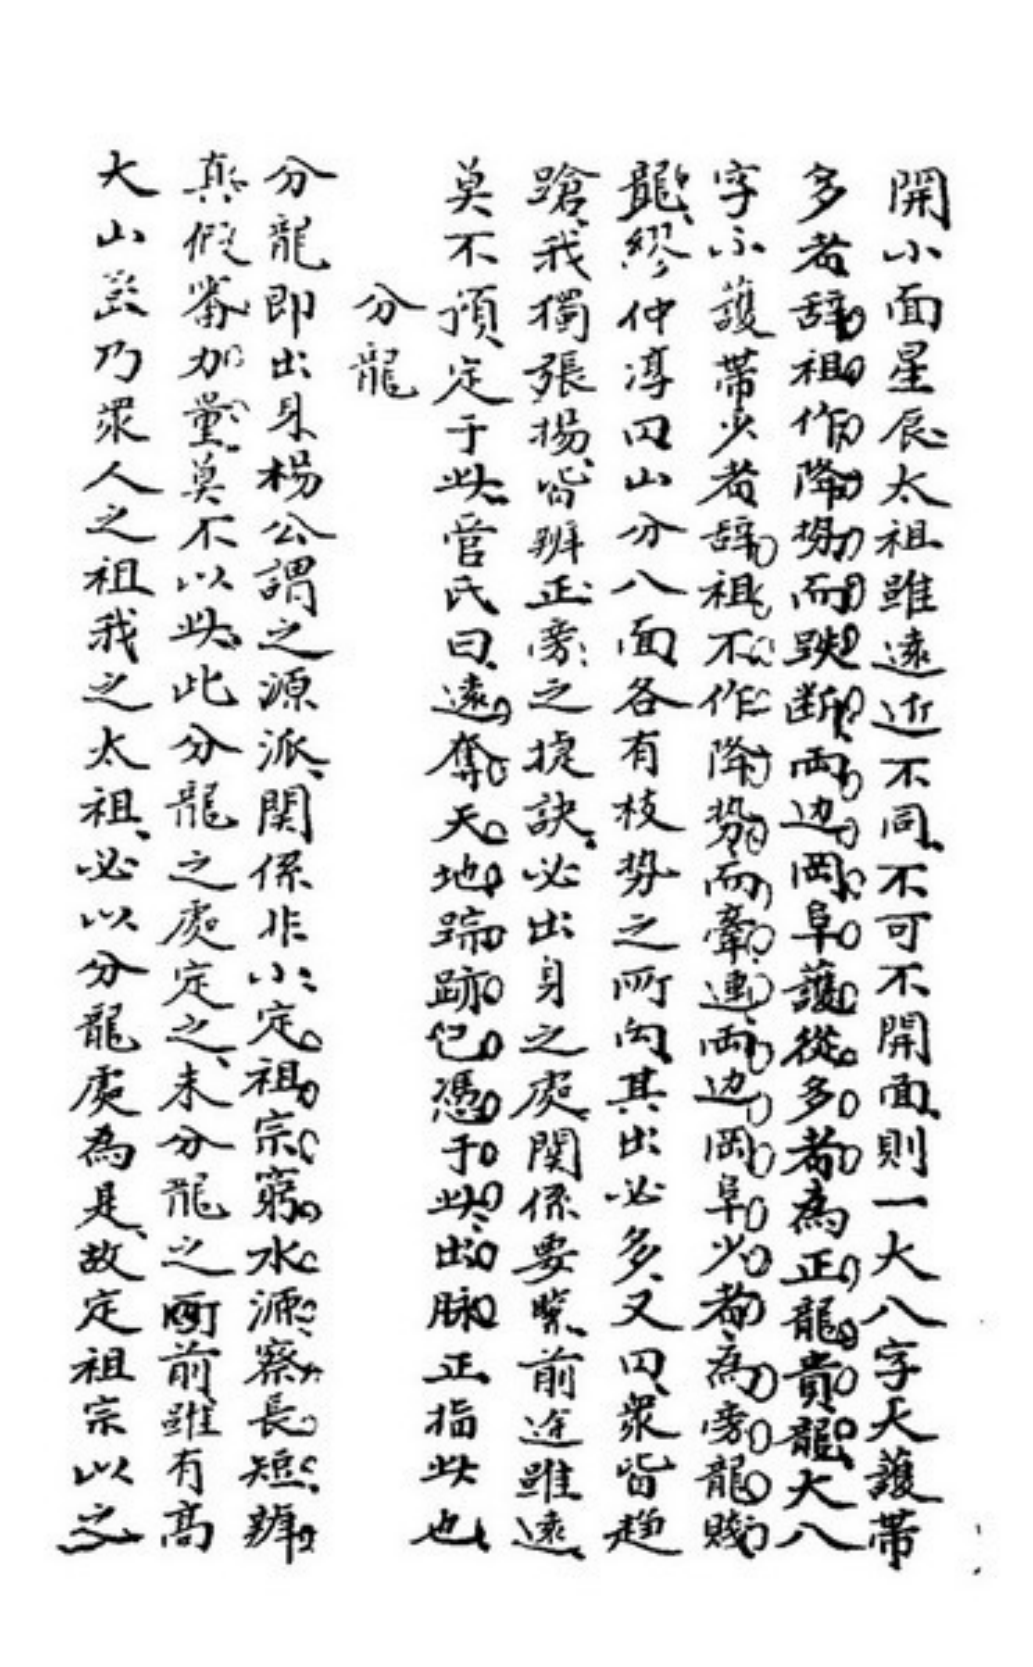 開小面星辰太祖雖遠近不同不可不開面則一大八字天護帶
多者辞祖作降勢而跌断両边岡阜護從多者為正龍貴龍大八
字小護帶少者辞祖不作降勢而牽連両边岡阜少者為旁龍賤
龍繆仲淳曰山分八面各有枝势之所向其出必多又曰衆皆趋
蹌我獨張揚皆辨正旁之捷訣必出身之處関係要緊前途雖遠
莫不預定于此管氏曰遠奪天地踪跡已憑于此出脉正指此也
分龍
分龍即出身楊公謂之源派関係非小定祖宗窮水源察長短辨
真假審加量莫不以此此分龍之處定之未分龍之所前雖有高
大山峦乃衆人之祖我之太祖必以分龍處為是故定祖宗以之